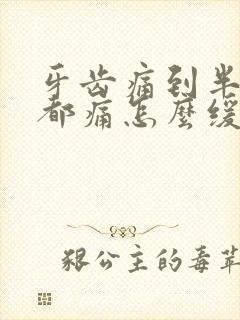 牙齿痛到半
都痛怎麼缓
狠公主的毒苹